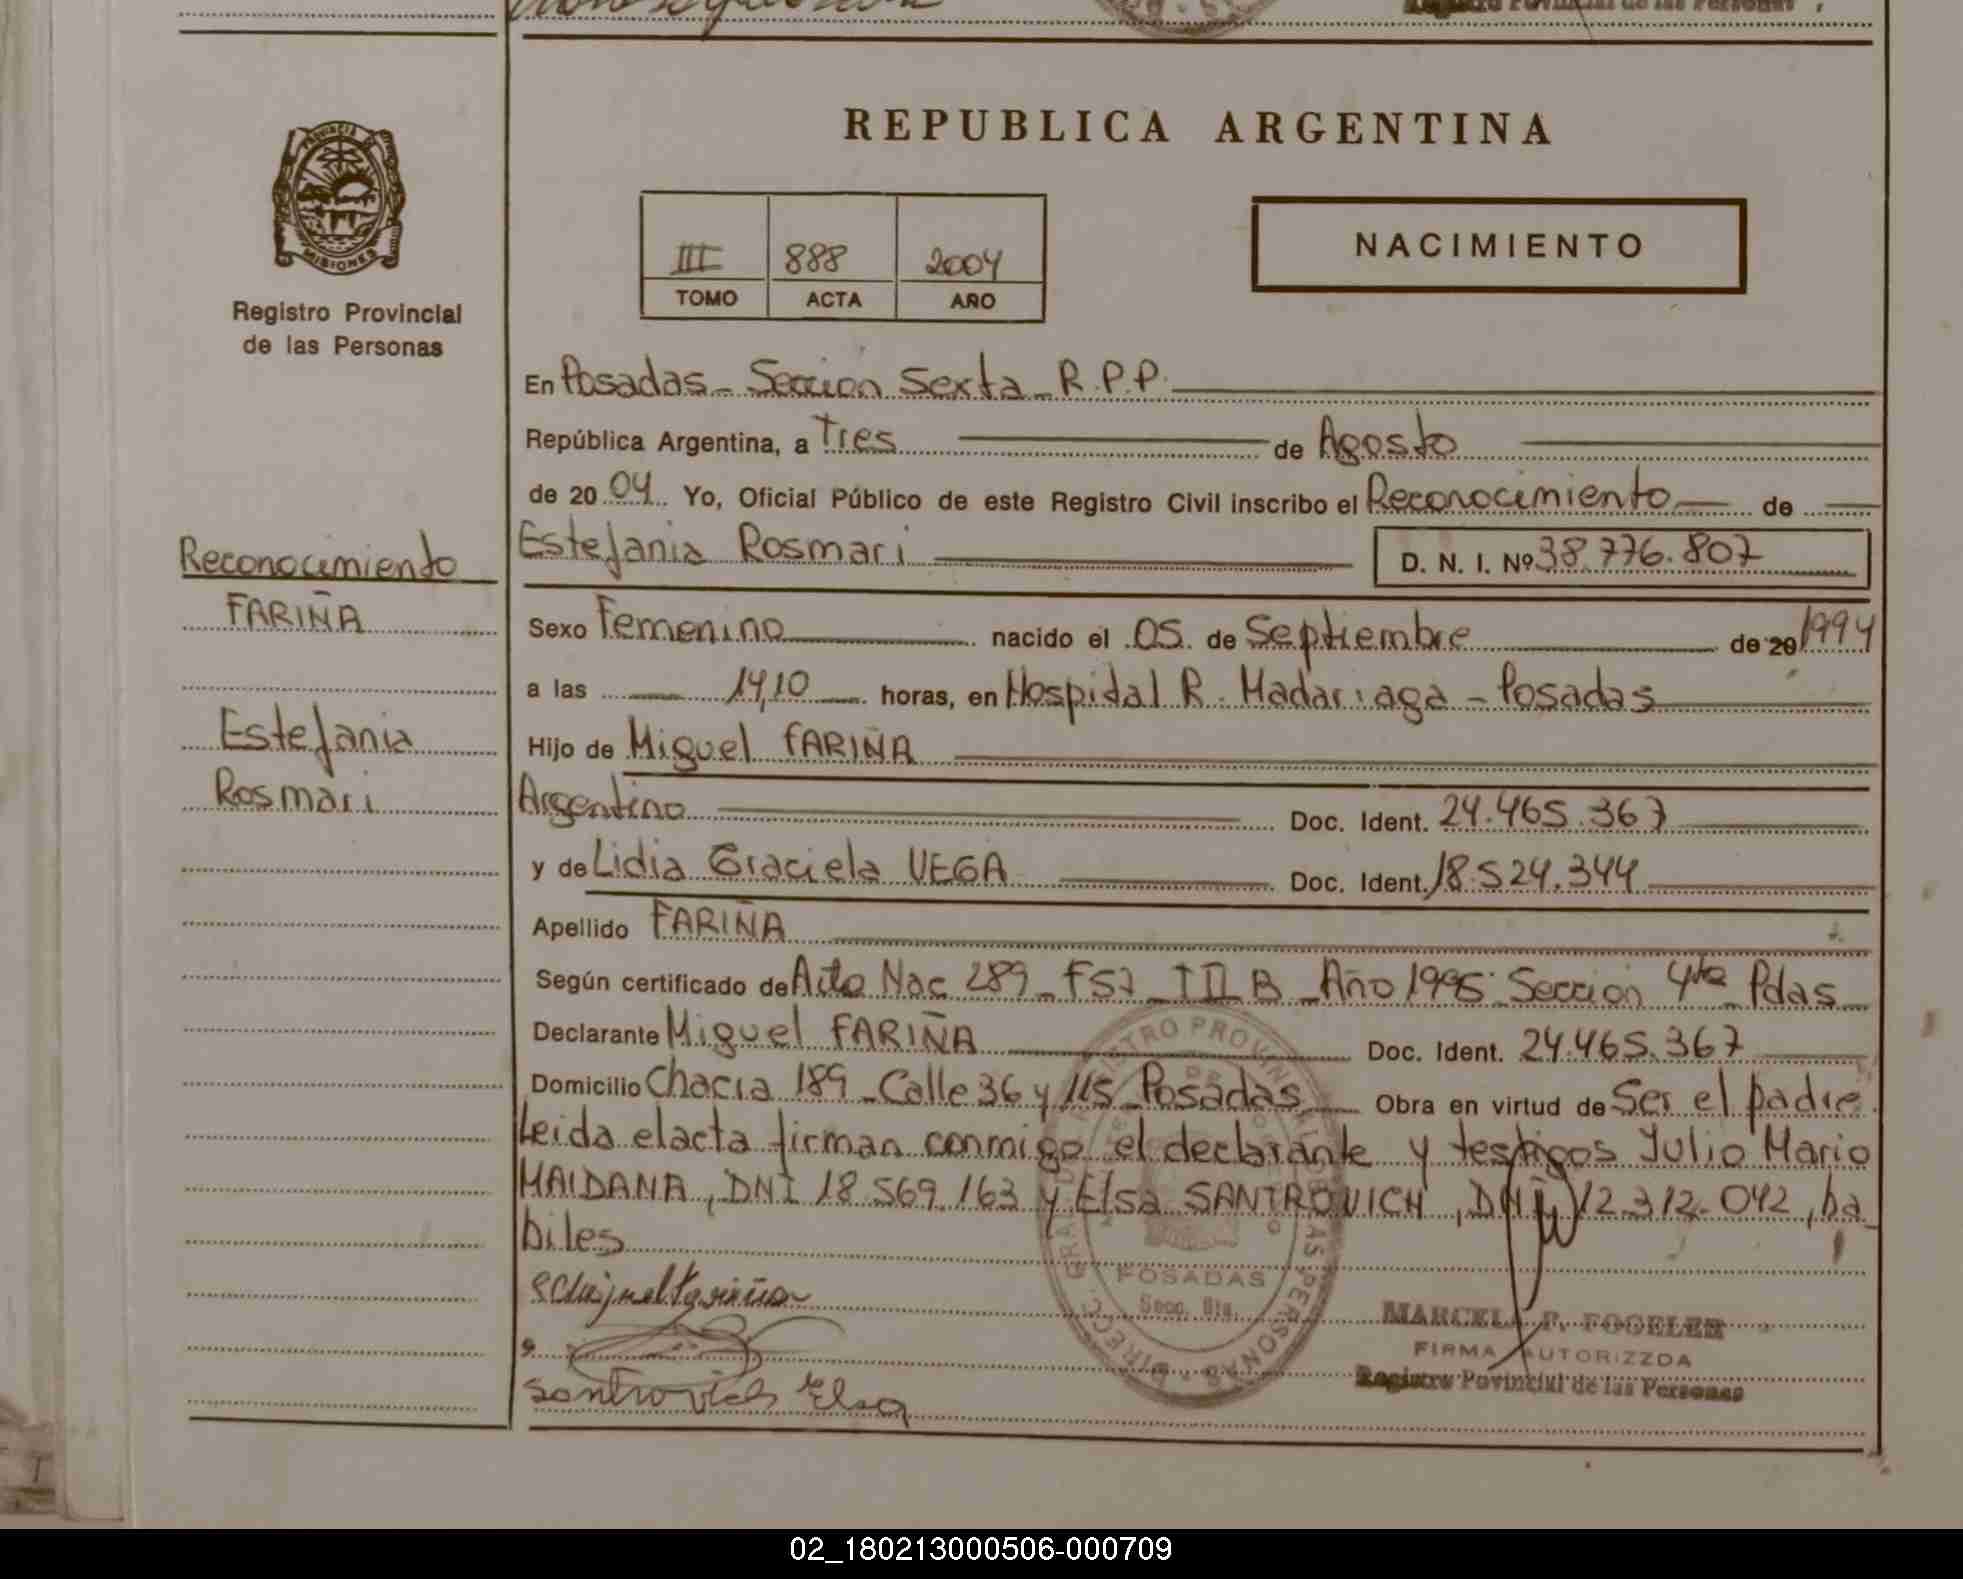 REPUBLICA ARGENTINA
PROVINCIA
MISIONES
Registro Provincial
de las Personas
III 888 2004
TOMO ACTA AÑO
NACIMIENTO
En Posadas - Seccion Sexta - R.P.P.
República Argentina, a Tres de Agosto
de 20 04 Yo, Oficial Público de este Registro Civil inscribo el Reconocimiento de
Estefania Rosmari D. N. I. Nº 38.776.807
Reconocimiento
FARIÑA
Estefania
Rosmari
Sexo Femenino nacido el 05 de Septiembre de 20 1994
a las 14,10 horas, en Hospital R. Madariaga - Posadas
Hijo de Miguel FARIÑA
Argentino Doc. Ident. 24.465.367
y de Lidia Graciela VEGA Doc. Ident. 18.524.344
Apellido FARIÑA
Según certificado de Acta Nac 289 - F57 - TII B - Año 1995 Seccion 4ta Pdas
Declarante Miguel FARIÑA Doc. Ident. 24.465.367
Domicilio Chacra 189 - Calle 36 y 115 - Posadas Obra en virtud de Ser el padre
Leida el acta firman conmigo el declarante y testigos Julio Mario
MAIDANA, DNI 18.569.163 y Elsa SANTROVICH, DNI 12.312.042, ha
biles
POSADAS
Secc. 6ta.
MARCELA P. FOGELER
FIRMA AUTORIZZDA
Registro Povincial de las Personas
Santrovich Elsa
02_180213000506-000709